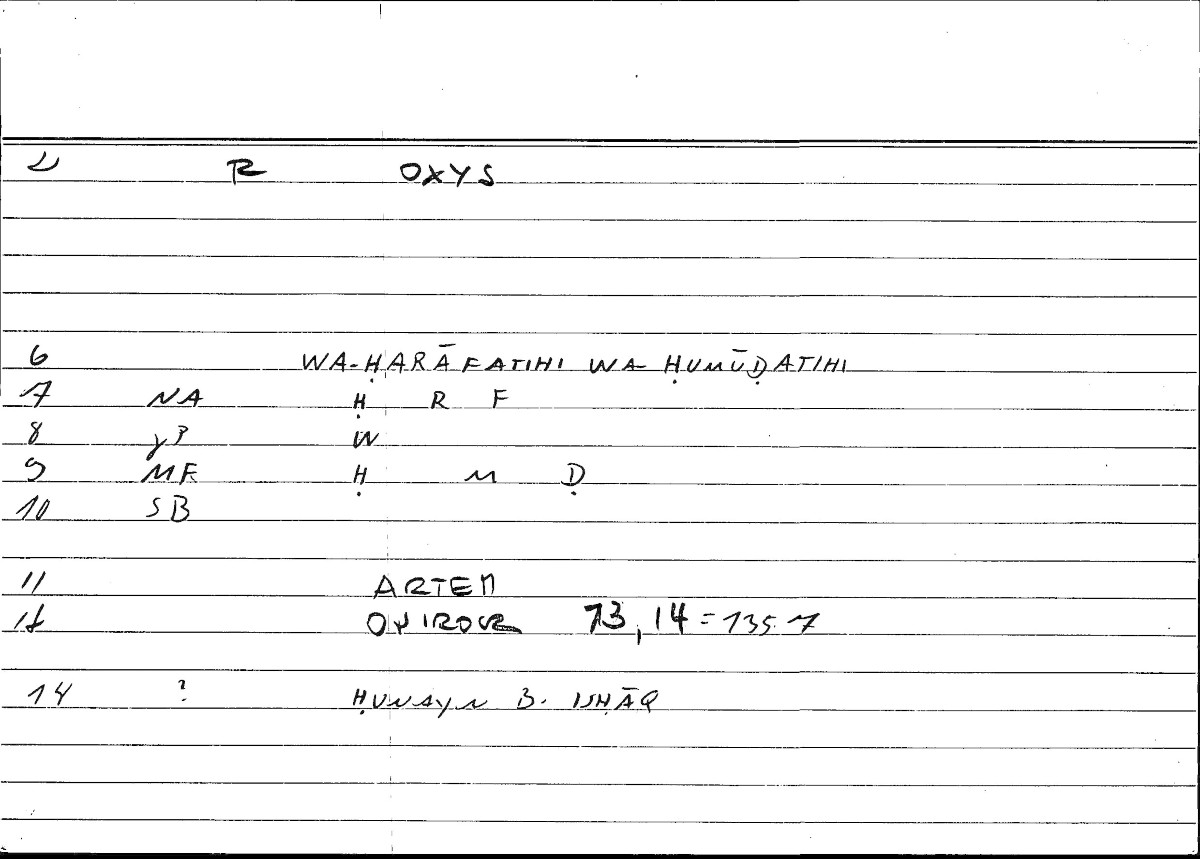 R OXYS
6 WA-ḤARĀFATIHI WA-ḤUMŪḌATIHI
7 NA Ḥ R F
8 W
9 MF Ḥ M Ḍ
10 SB
11 ARTEM
ONIROCR 13,14 = 135.7
14 ? ḤUNAYN B. ISḤĀQ